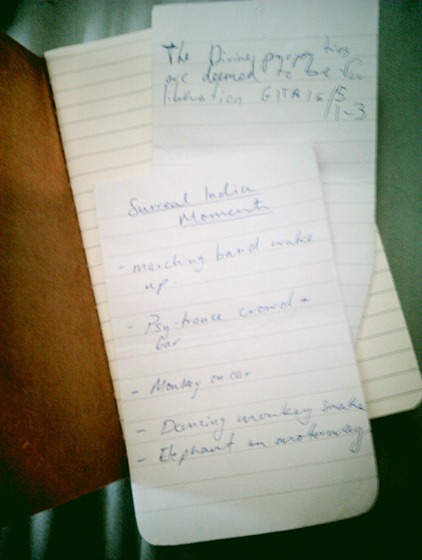 The Divine properties
are deemed to be for
liberation GITA 16/5
1-3
Surreal India
Moments
- marching band wake
up
- Psy-trance crowd +
bar
- Monkey on car
- Dancing monkey snake
- Elephant on motorway